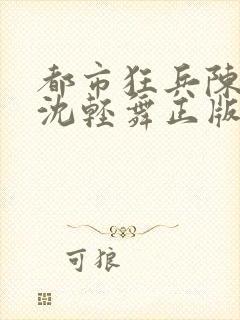 都市狂兵陳
沈輕舞正版
可狼